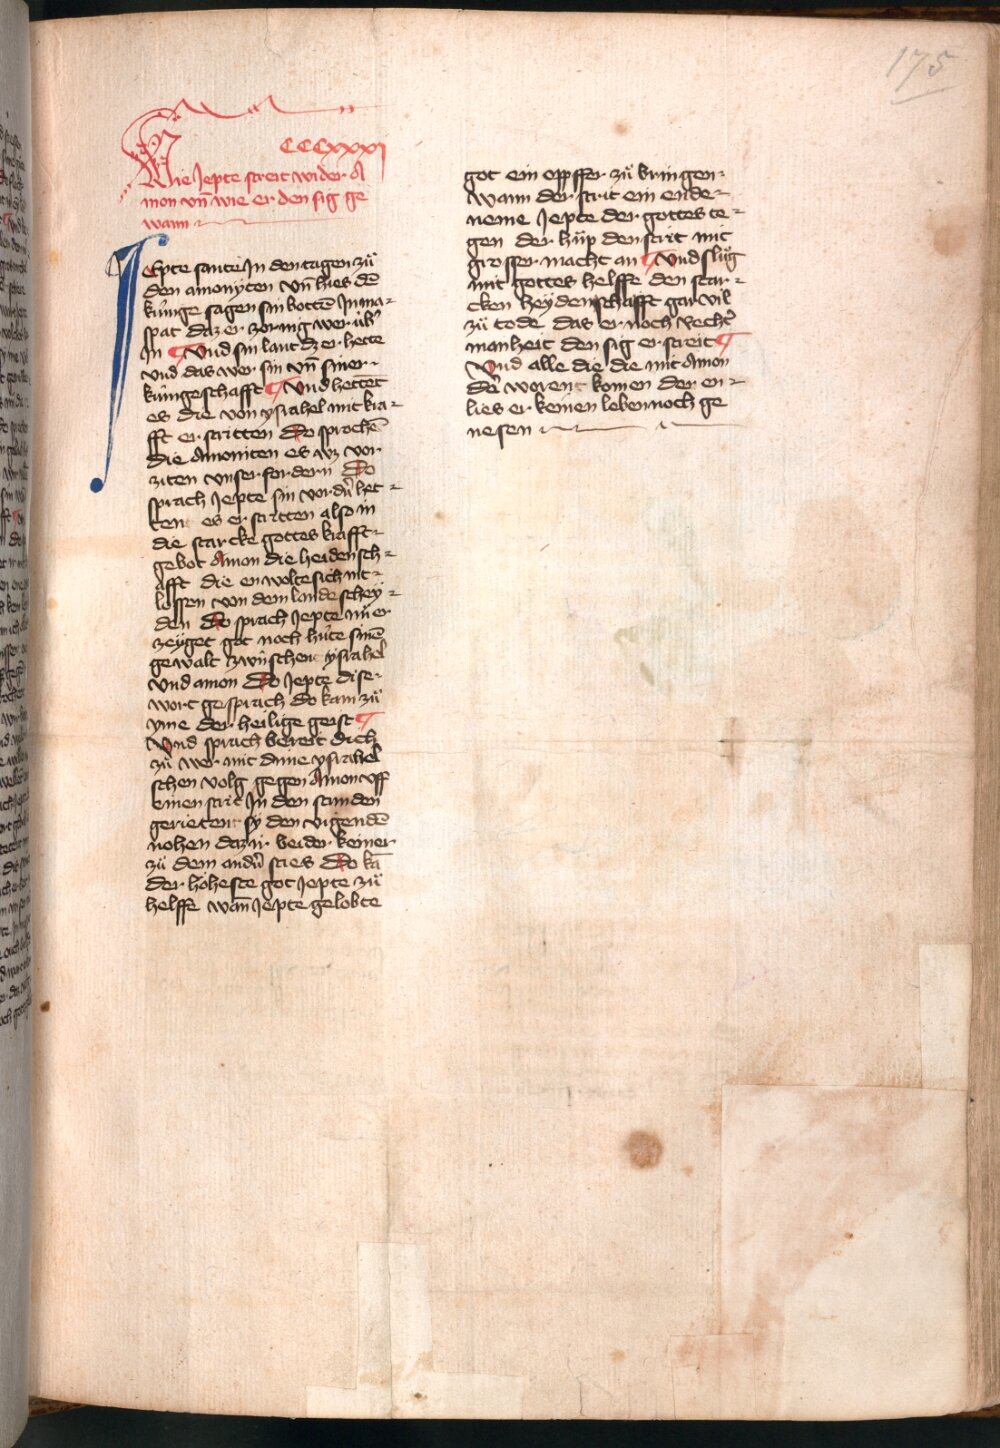 175
CCCXXXI
Wie Jepte streit wider A
mon vñ wie er den sig ge
wann
JEpte sante Jn den tagen zů
den amonyten vñ hies dē
kúnige sagen sin bottē Jn ma-
spat daz er zornig wer úb'
Jn ¶ Vnd sin lant dz er hette
vnd das wer sin vñ siner
kúnigeschafft ¶ Vnd hettēt
es die von ysrahel mit kra-
fft erstritten Do sprochē
die Amoniten es wz vor
ziten vnser fordern Do
sprach Jepte sin vordˢn het-
tent es erstritten also in
die starcke gottes krafft
gebot Amon die heidensch-
afft die en wolte sich nit
lossen von dem lande schey-
den Do sprach Jepte nů er
zeyget got noch húte sinē
gewalt zwúschent ysrahel
vnd amon Do Jepte dise
wort gesprach do kam zů
yme der heilige geist ¶
Vnd sprach bereit dich
zů wer mit dime ysrahel
schen volg gegen Amon vff
einen strit Jn den stunden
gerietent sy den vigendē
nohen daz ir beider keiner
zů dem andˢn sties Do kā
der hoheste got Jepte zů
helffe wañ Jepte gelobte
got ein opffer zů bringen
wann der strit ein ende
neme Jepte der gottes te-
gen der hůp den strit mit
grosser macht an ¶ Vnd slůg
mit gottes helffe den star-
cken heydenschafft gar vil
zů tode das er noch rechtˢ
manheit den sig erstreit ¶
Vnd alle die die mit Amon
dˢ worent komen der en-
lies er keinen leben noch ge
nesen